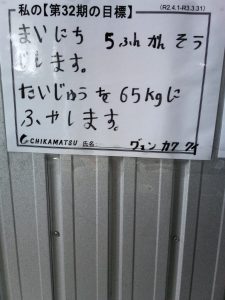 私の【第32期の目標】
(R2.4.1-R3.3.31)
まいにち 5ふんかんそう
じします。
たいじゅうを65kgに
ふやします。
CHIKAMATSU 氏名:
ヴェン カク